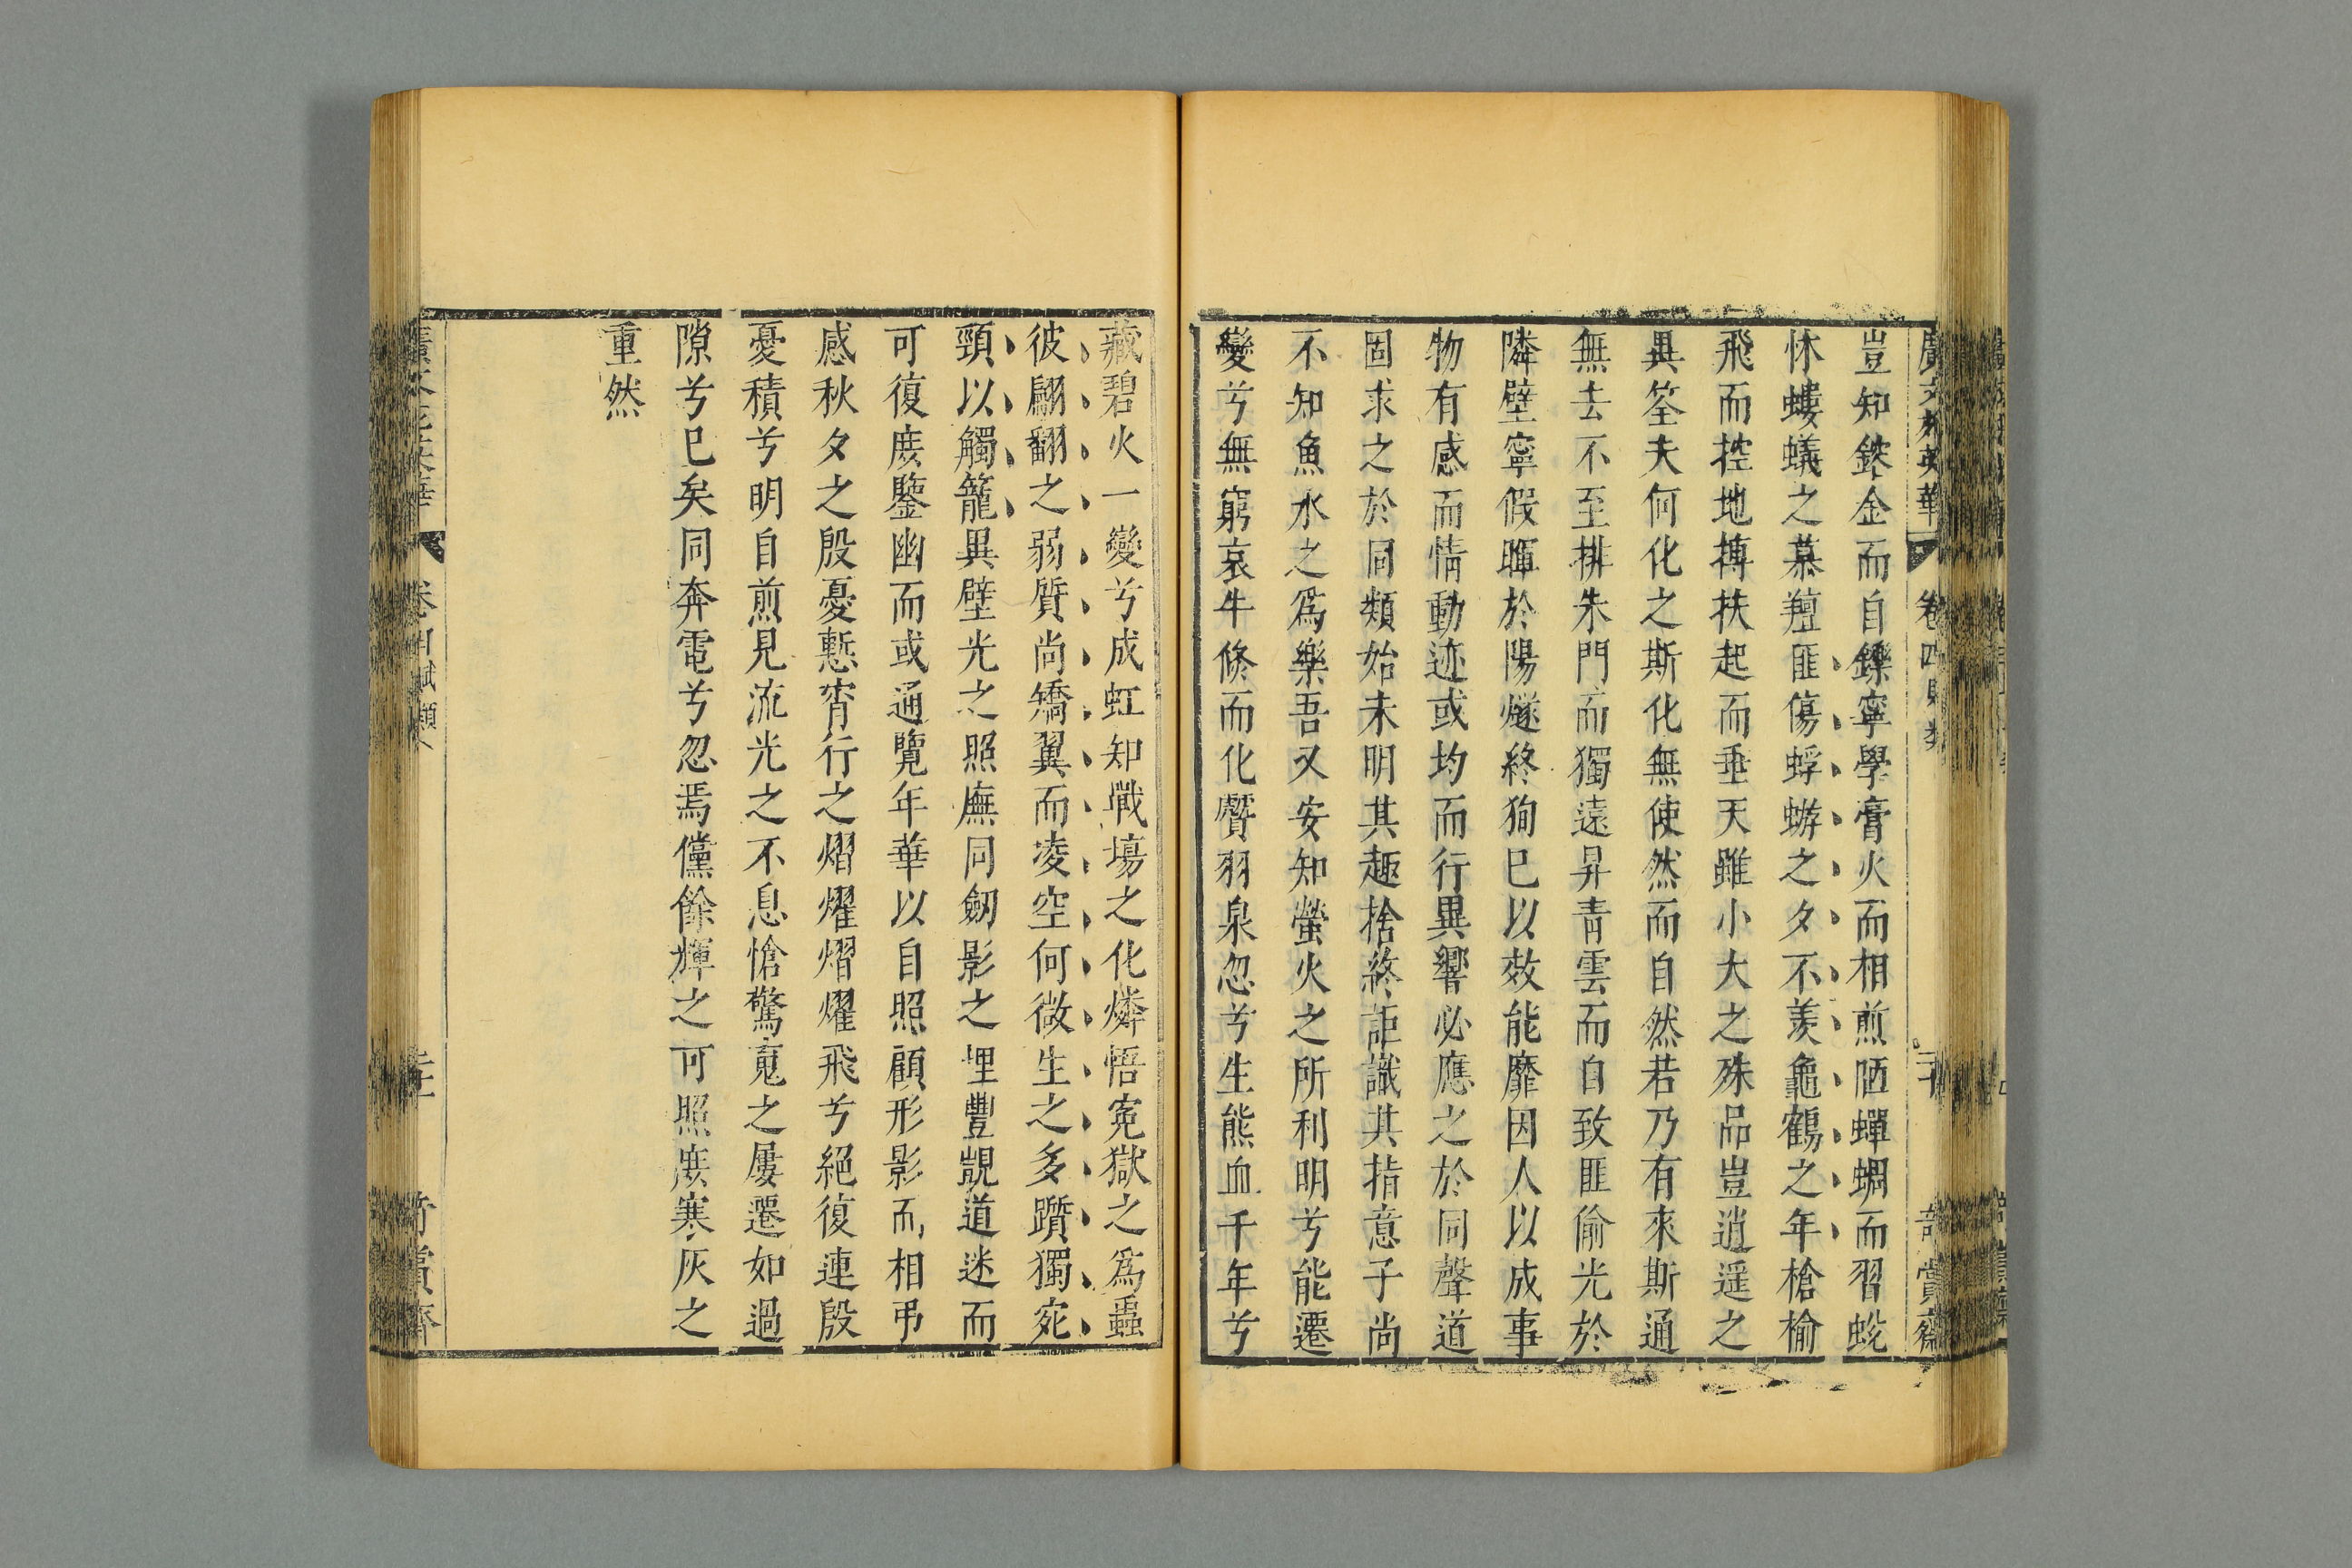 廣文苑英華 卷四賦類 二十 奇賞齋
豈知鍒金而自鑠寧學膏火而相煎陋蟬蜩而習蛻
怵螻蟻之慕羶匪傷蜉蝣之夕不羡龜鶴之年槍榆
飛而控地摶扶起而垂天雖小大之殊品豈逍遥之
異筌夫何化之斯化無使然而自然若乃有來斯通
無去不至排朱門而獨遠昇青雲而自致匪偷光於
隣壁寧假暉於陽燧終狥巳以效能靡因人以成事
物有感而情動迹或均而行異響必應之於同聲道
固求之於同類始未明其趣捨終詎識其指意子尚
不知魚水之爲樂吾又安知螢火之所利明兮能遷
變兮無窮哀牛倐而化䝟羽泉忽兮生熊血千年兮
藏碧火一變兮成虹知戰塲之化燐悟寃獄之爲蟲
彼翩翻之弱質尚矯翼而凌空何微生之多躓獨宛
頸以觸籠異壁光之照廡同劒影之埋豐覬道迷而
可復庻鑒幽而或通覽年華以自照顧形影而相弔
感秋夕之殷憂慙宵行之熠燿熠燿飛兮絕復連殷
憂積兮明自煎見流光之不息愴驚䰟之屢遷如過
隙兮巳矣同奔電兮忽焉儻餘輝之可照庻寒灰之
重然
卷四賦類 奇賞齋